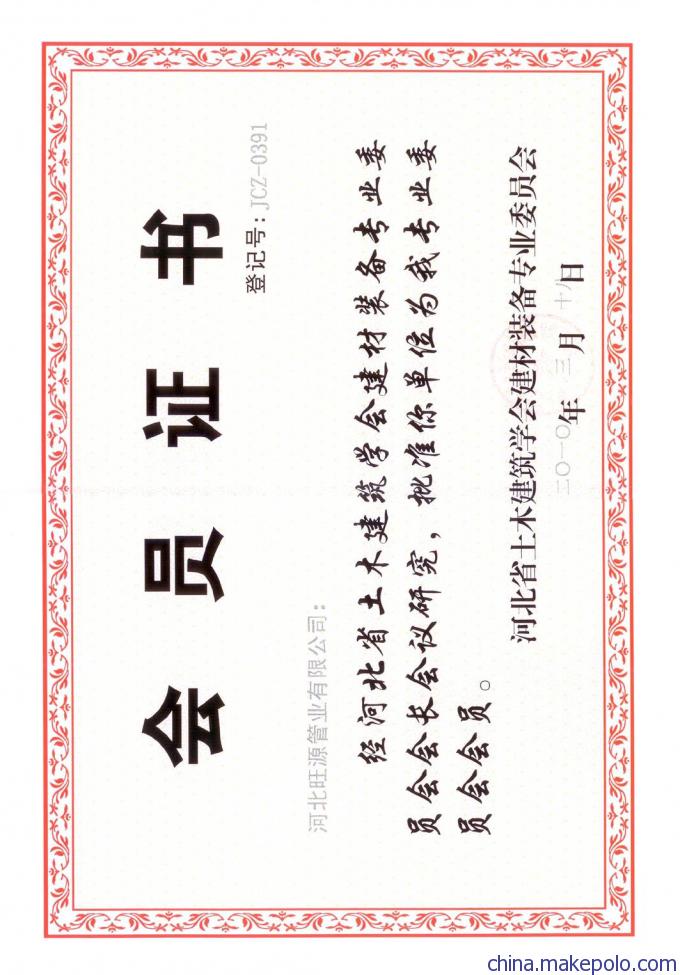 会员证书
登记号：JCZ-0391
河北旺源管业有限公司：
经河北省土木建筑学会建材装备专业委
员会会长会议研究，批准你单位为我专业委
员会会员。
河北省土木建筑学会建材装备专业委员会
二〇一〇年三月十八日
china.makepolo.com